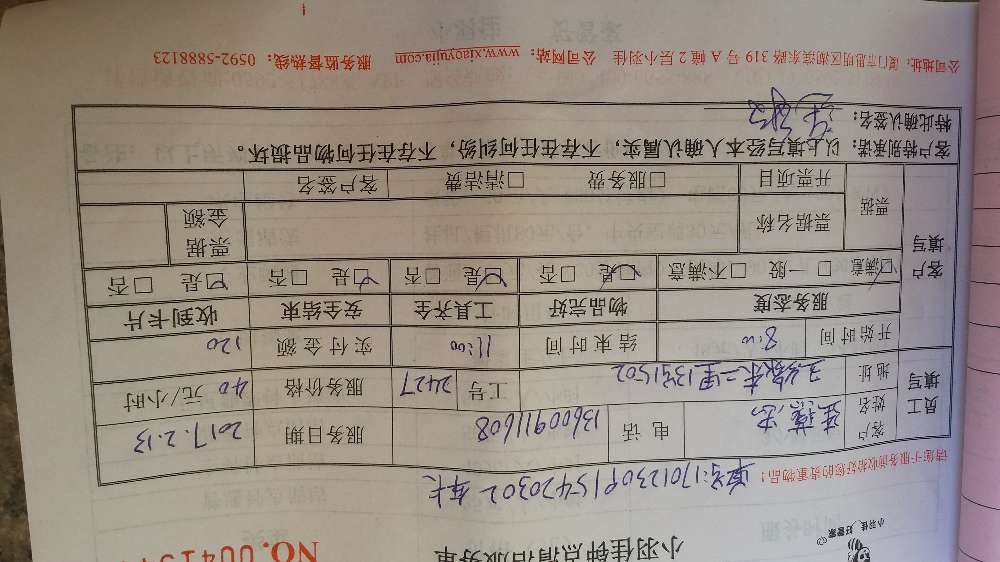 小羽佳 好管家
小羽佳钟点清洁服务单
NO.004154
单号:170123091S420302 车长
请您于服务前收拾好您的贵重物品!
员工填写
客户姓名
电话 13600911608
服务日期 2017.2.13
地址
工号 2427
服务价格 40 元/小时
开始时间 8:00
结束时间 11:00
实付金额 120
客户填写
服务态度 物品完好 工具齐全 安全结束 收到卡片
☑满意 □一般 □不满意 ☑是 □否 ☑是 □否 ☑是 □否 ☑是 □否
票据 票据名称 票据金额
开票项目 □服务费 □清洁费 客户签名
客户特别承诺:以上填写经本人确认属实,不存在任何纠纷,不存在任何物品损坏。
特此确认签名:
公司地址:厦门市思明区湖滨东路 319 号 A 幢 2 层小羽佳 公司网站:www.xiaoyujia.com 服务监督热线:0592-5888123